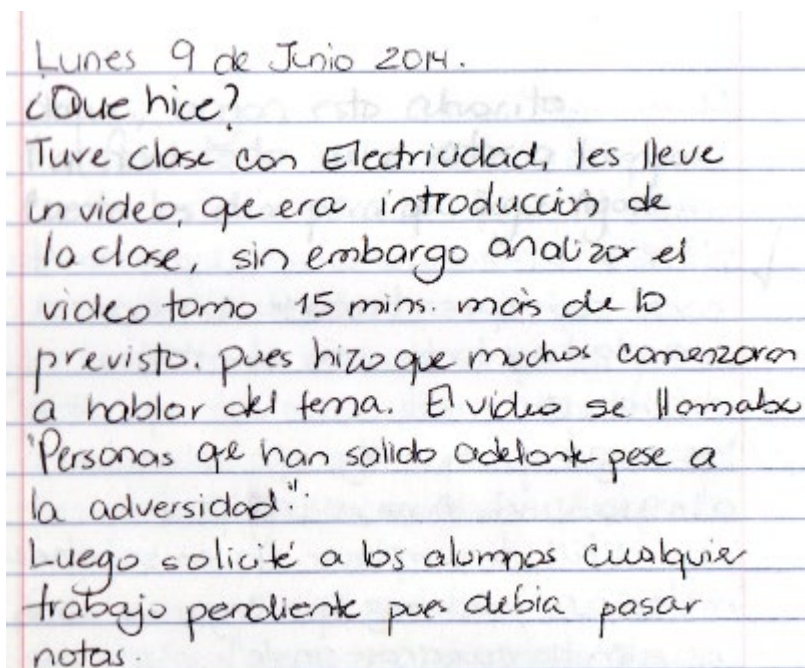 Lunes 9 de Junio 2014.
¿Que hice?
Tuve clase con Electricidad, les lleve
un video, que era introducción de
la clase, sin embargo analizar el
video tomo 15 mins. más de lo
previsto. pues hizo que muchos comenzaran
a hablar del tema. El video se llamaba
"Personas qe han salido adelante pese a
la adversidad".
Luego solicité a los alumnos cualquier
trabajo pendiente pues debia pasar
notas.